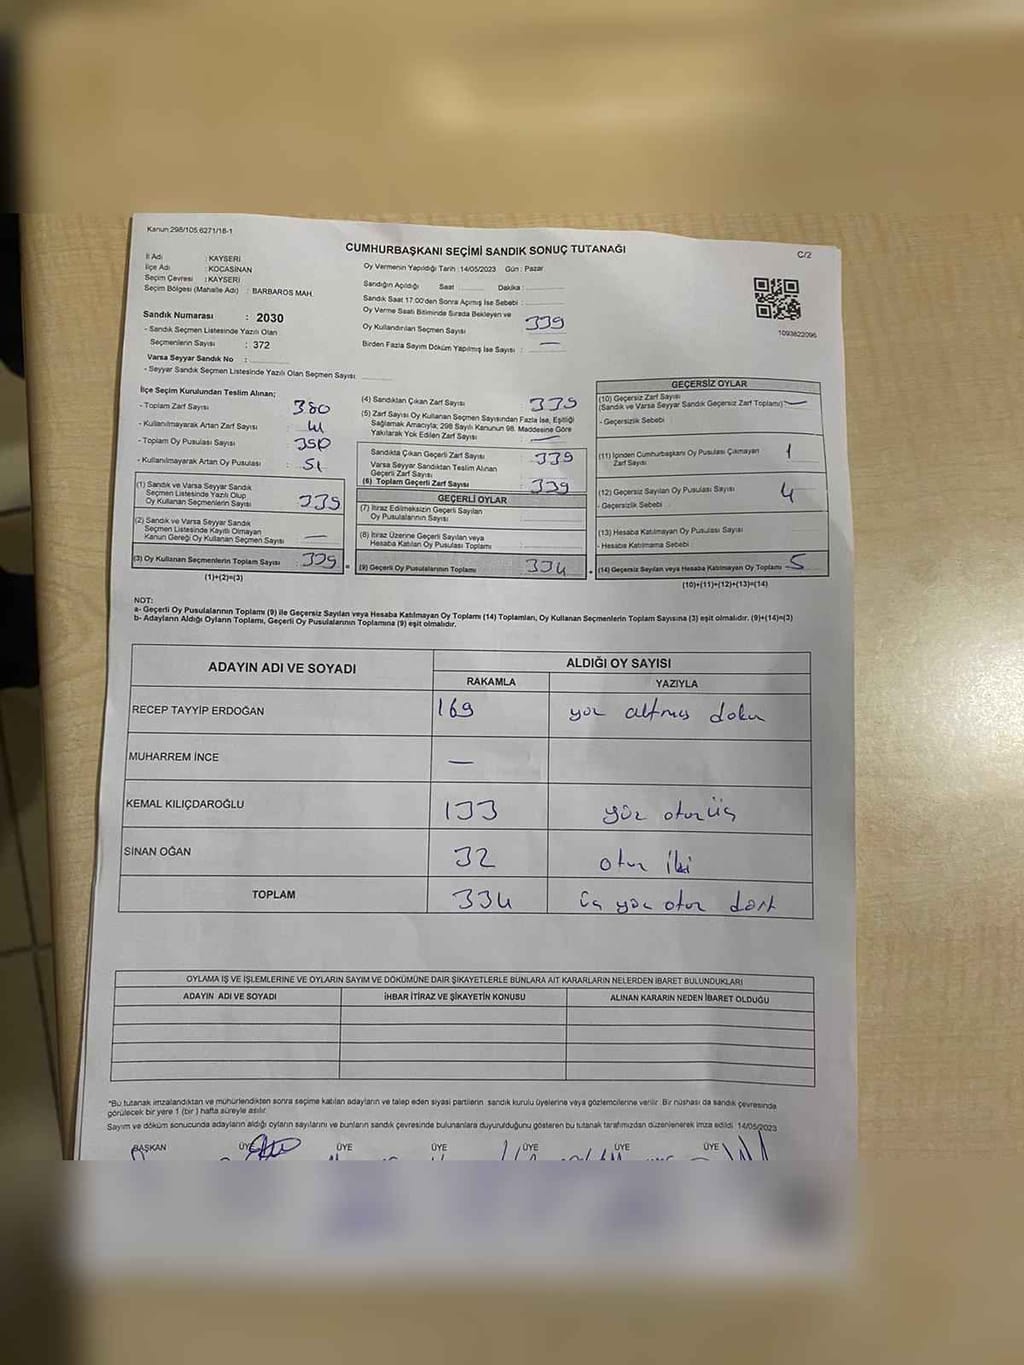 Kanun 298/105.6271/18-1
CUMHURBAŞKANI SEÇİMİ SANDIK SONUÇ TUTANAĞI
C/2
İl Adı : KAYSERİ
İlçe Adı : KOCASİNAN
Seçim Çevresi : KAYSERİ
Seçim Bölgesi (Mahalle Adı) : BARBAROS MAH.
Sandık Numarası : 2030
- Sandık Seçmen Listesinde Yazılı Olan
Seçmenlerin Sayısı : 372
Varsa Seyyar Sandık No :
- Seyyar Sandık Seçmen Listesinde Yazılı Olan Seçmen Sayısı
Oy Vermenin Yapıldığı Tarih : 14/05/2023 Gün : Pazar
Sandığın Açıldığı Saat Dakika :
Sandık Saat 17:00'den Sonra Açılmış İse Sebebi :
Oy Verme Saati Bitiminde Sırada Bekleyen ve
Oy Kullandırılan Seçmen Sayısı 339
Birden Fazla Sayım Döküm Yapılmış İse Sayısı : —
1093822096
İlçe Seçim Kurulundan Teslim Alınan;
- Toplam Zarf Sayısı : 380
- Kullanılmayarak Artan Zarf Sayısı : 41
- Toplam Oy Pusulası Sayısı : 390
- Kullanılmayarak Artan Oy Pusulası : 51
(1) Sandık ve Varsa Seyyar Sandık
Seçmen Listesinde Yazılı Olup
Oy Kullanan Seçmenlerin Sayısı : 339
(2) Sandık ve Varsa Seyyar Sandık
Seçmen Listesinde Kayıtlı Olmayan
Kanun Gereği Oy Kullanan Seçmen Sayısı : —
(3) Oy Kullanan Seçmenlerin Toplam Sayısı : 339
(1)+(2)=(3)
=
(4) Sandıktan Çıkan Zarf Sayısı : 339
(5) Zarf Sayısı Oy Kullanan Seçmen Sayısından Fazla İse, Eşitliği
Sağlamak Amacıyla; 298 Sayılı Kanunun 98. Maddesine Göre
Yakılarak Yok Edilen Zarf Sayısı : —
Sandıkta Çıkan Geçerli Zarf Sayısı : 339
Varsa Seyyar Sandıktan Teslim Alınan
Geçerli Zarf Sayısı
(6) Toplam Geçerli Zarf Sayısı : 339
GEÇERLİ OYLAR
(7) İtiraz Edilmeksizin Geçerli Sayılan
Oy Pusulalarının Sayısı
(8) İtiraz Üzerine Geçerli Sayılan veya
Hesaba Katılan Oy Pusulası Toplamı
(9) Geçerli Oy Pusulalarının Toplamı : 334
GEÇERSİZ OYLAR
(10) Geçersiz Zarf Sayısı
(Sandık ve Varsa Seyyar Sandık Geçersiz Zarf Toplamı) —
- Geçersizlik Sebebi
(11) İçinden Cumhurbaşkanı Oy Pusulası Çıkmayan
Zarf Sayısı 1
(12) Geçersiz Sayılan Oy Pusulası Sayısı 4
- Geçersizlik Sebebi
(13) Hesaba Katılmayan Oy Pusulası Sayısı
- Hesaba Katılmama Sebebi
(14) Geçersiz Sayılan veya Hesaba Katılmayan Oy Toplamı 5
(10)+(11)+(12)+(13)=(14)
NOT:
a- Geçerli Oy Pusulalarının Toplamı (9) ile Geçersiz Sayılan veya Hesaba Katılmayan Oy Toplamı (14) Toplamları, Oy Kullanan Seçmenlerin Toplam Sayısına (3) eşit olmalıdır. (9)+(14)=(3)
b- Adayların Aldığı Oyların Toplamı, Geçerli Oy Pusulalarının Toplamına (9) eşit olmalıdır.
ADAYIN ADI VE SOYADI ALDIĞI OY SAYISI
RAKAMLA YAZIYLA
RECEP TAYYİP ERDOĞAN 169 yüz altmış dokuz
MUHARREM İNCE —
KEMAL KILIÇDAROĞLU 133 yüz otuz üç
SİNAN OĞAN 32 otuz iki
TOPLAM 334 üç yüz otuz dört
OYLAMA İŞ VE İŞLEMLERİNE VE OYLARIN SAYIM VE DÖKÜMÜNE DAİR ŞİKAYETLERLE BUNLARA AİT KARARLARIN NELERDEN İBARET BULUNDUKLARI
ADAYIN ADI VE SOYADI İHBAR İTİRAZ VE ŞİKAYETİN KONUSU ALINAN KARARIN NEDEN İBARET OLDUĞU
*Bu tutanak imzalandıktan ve mühürlendikten sonra seçime katılan adayların ve talep eden siyasi partilerin sandık kurulu üyelerine veya gözlemcilerine verilir. Bir nüshası da sandık çevresinde
görülecek bir yere 1 (bir) hafta süreyle asılır.
Sayım ve döküm sonucunda adayların aldığı oyların sayılarını ve bunların sandık çevresinde bulunanlara duyurulduğunu gösteren bu tutanak tarafımızdan düzenlenerek imza edildi. 14/05/2023
BAŞKAN ÜYE ÜYE ÜYE ÜYE ÜYE ÜYE